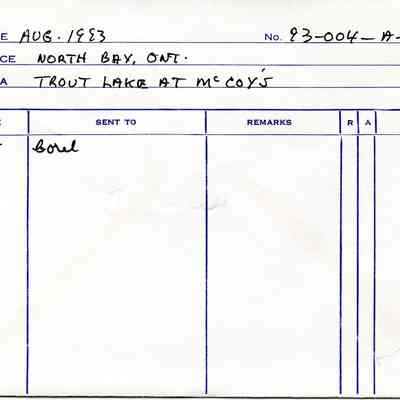 E AUG. 1993 No. 93-004-A-
CE NORTH BAY, ONT.
A TROUT LAKE AT McCOY'S
SENT TO REMARKS R A
Corel